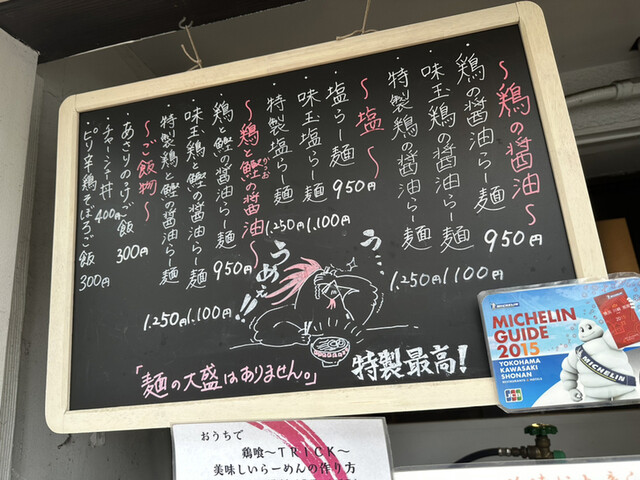 ～鶏の醤油～
・鶏の醤油らー麺 950円
・味玉鶏の醤油らー麺 1.100円
・特製鶏の醤油らー麺 1.250円
～塩～
・塩らー麺 950円
・味玉塩らー麺 1.100円
・特製塩らー麺 1.250円
～鶏と鰹の醤油～
かつお
・鶏と鰹の醤油らー麺 950円
・味玉鶏と鰹の醤油らー麺 1.100円
・特製鶏と鰹の醤油らー麺 1.250円
～ご飯物～
・あさりのっけご飯 300円
・チャーシュー丼 400円
・ピリ辛鶏そぼろご飯 300円
う…
うめぇ!!
特製最高!
「麺の大盛はありません。」
MICHELIN
MICHELIN
GUIDE
2015
YOKOHAMA
KAWASAKI
SHONAN
RESTAURANTS & HOTELS
JCB
おうちで
鶏喰～TRICK～
美味しいらーめんの作り方